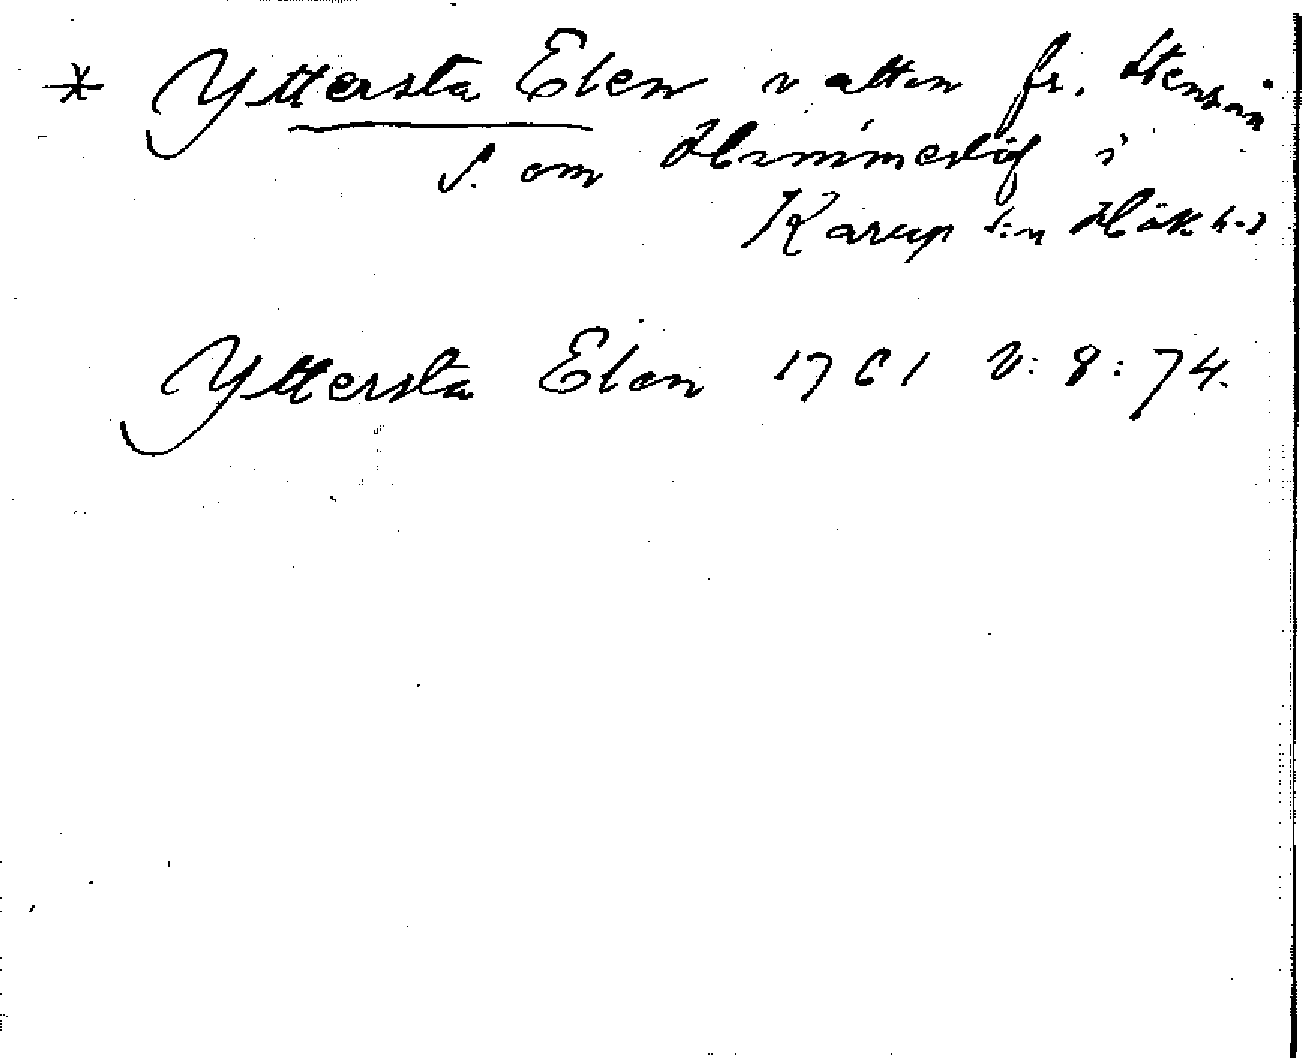 * Yttersta Elen vatten fr. Stensån
S. om Hemmeslöf i
Karup s:n Hök h-d
Yttersta Elen 1761 V: 8: 74.